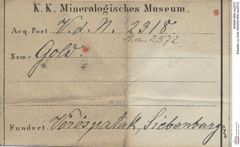 K. K. Mineralogisches Museum.
Acq. Post V. d. N. 2318
A.a. 2572
Name Gold.
Fundort Vöröspatak, Siebenbürgen